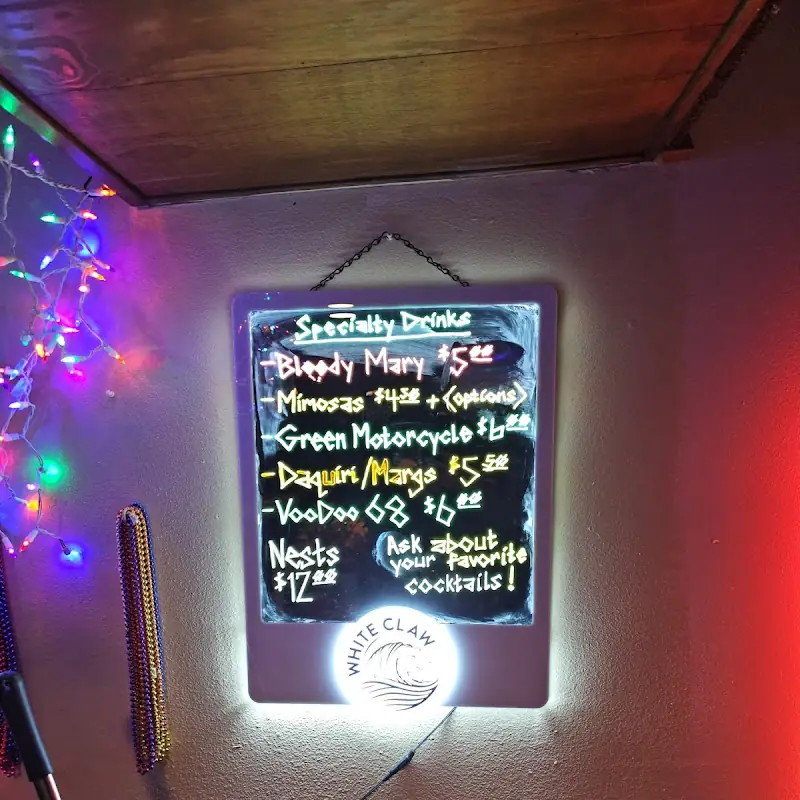 Specialty Drinks
-Bloody Mary $5⁰⁰
-Mimosas $4⁵⁰ + <options>
-Green Motorcycle $6⁰⁰
-Daquiri/Margs $5⁵⁰
-VooDoo 68 $6⁰⁰
Nests
$12⁰⁰
Ask about
your favorite
cocktails!
WHITE CLAW